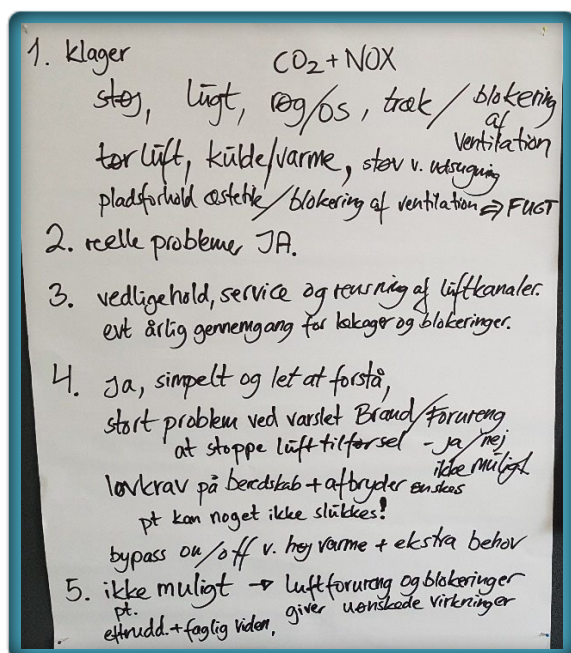 1. klager CO2 + NOX
støj, lugt, røg/os, træk / blokering af ventilation
tør luft, kulde/varme, støv v. udsugning
pladsforhold æstetik / blokering af ventilation ⇒ FUGT
2. reelle problemer JA.
3. vedligehold, service og rensning af luftkanaler.
evt årlig gennemgang for lækager og blokeringer.
4. Ja, simpelt og let at forstå,
stort problem ved varslet Brand/Forureng
at stoppe lufttilførsel - ja/nej
ikke muligt
lovkrav på beredskab + afbryder ønskes
pt kan noget ikke slukkes!
bypass on/off v. høj varme + ekstra behov
5. ikke muligt → luftforureng og blokeringer
pt. giver uønskede virkninger
eftrudd. + faglig viden,